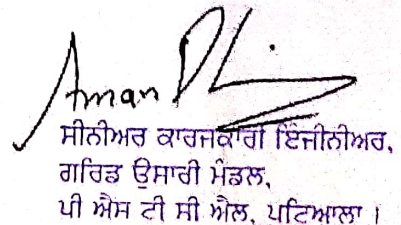 Aman
ਸੀਨੀਅਰ ਕਾਰਜਕਾਰੀ ਇੰਜੀਨੀਅਰ,
ਗਰਿਡ ਉਸਾਰੀ ਮੰਡਲ,
ਪੀ ਐਸ ਟੀ ਸੀ ਐਲ, ਪਟਿਆਲਾ ।